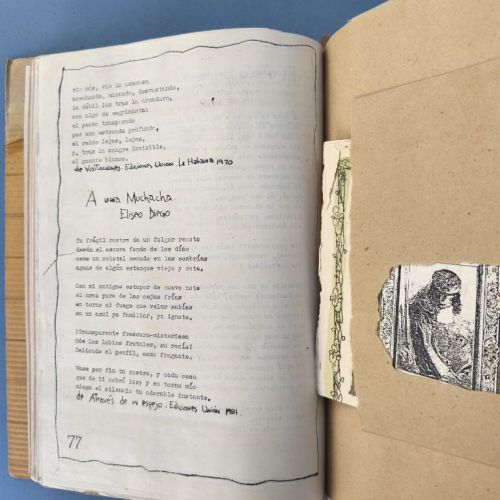 vio más, vio la amenaza
acechando, minando, devastando,
la débil luz tras la armadura,
con algo de espadista:
el pecho traspasado
por una estocada profunda,
el reino lejos, lejos,
y, tras la sangre invisible,
el guante blanco.
de Visitaciones. Ediciones Unión. La Habana 1970
A una Muchacha
Eliseo Diego
Tu frágil rostro de un fulgor remoto
desde el oscuro fondo de los días
como un cristal menudo en las sombrías
aguas de algún estanque viejo y roto.
Con mi antiguo estupor de nuevo noto
el arco puro de las cejas frías
en torno al fuego que velar sabías
en un azul ya familiar, ya ignoto.
¡Transparente frescura misteriosa
de los labios frutales, su rocío!
Delicado el perfil, como fragante.
Vase por fin tu rostro, y cada cosa
que de ti cobró luz; y en torno mío
niega el silencio tu adorable instante.
de Através de mi espejo. Ediciones Unión 1981.
77